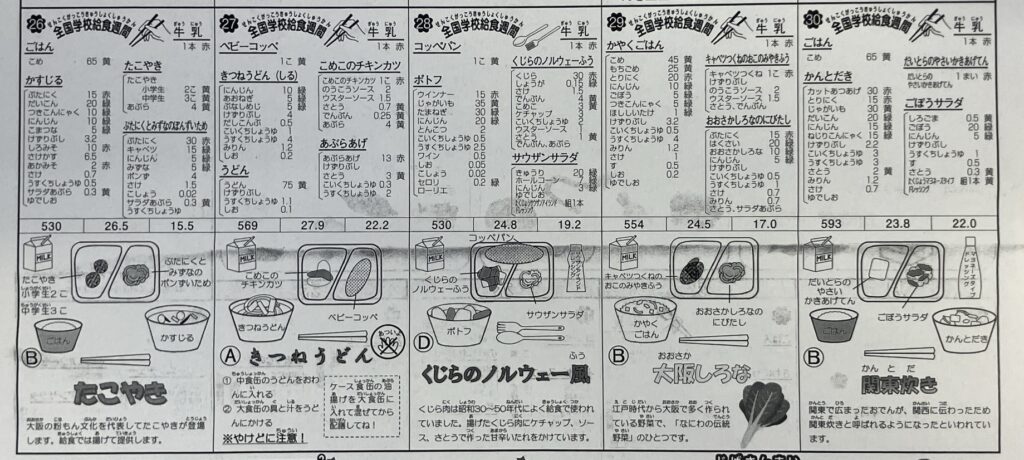 26
ぜんこくがっこうきゅうしょくしゅうかん
全国学校給食週間
ぎゅうにゅう
牛乳
1本 赤
ごはん
こめ 65 黄
かすじる
ぶたにく 15 赤
だいこん 20 緑
つきこんにゃく 10 緑
にんじん 10 緑
こまつな 5 緑
けずりぶし 3.2
しろみそ 10 赤
さけかす 6.5
あかみそ 2 赤
さけ 0.7
うすくちしょうゆ 0.5
サラダあぶら 0.3 黄
ゆでしお
たこやき
たこやき
小学生 2コ 黄
中学生 3コ 黄
あぶら 4 黄
ぶたにくとみずなのぽんずいため
ぶたにく 30 赤
キャベツ 15 緑
にんじん 5 緑
みずな 5 緑
ポンず 4
さけ 1.5
こしょう 0.02
サラダあぶら 0.3 黄
うすくちしょうゆ
530 26.5 15.5
MILK
たこやき
小学生2こ
中学生3こ
ぶたにくと
みずなの
ポンずいため
ごはん
かすじる
B
たこやき
大阪の粉もん文化を代表してたこやきが登場
します。給食では揚げて提供します。
27
ぜんこくがっこうきゅうしょくしゅうかん
全国学校給食週間
ぎゅうにゅう
牛乳
1本 赤
ベビーコッペ
1コ 黄
きつねうどん(しる)
にんじん 10 緑
あおねぎ 5 緑
ぶなしめじ 5 緑
けずりぶし 4
だしこんぶ 0.5
こいくちしょうゆ 1
うすくちしょうゆ 4
みりん 1.2
しお 0.2
うどん
うどん 75 黄
けずりぶし 1
うすくちしょうゆ 1.1
しお 0.1
こめこのチキンカツ
こめこのチキンカツ 1コ 赤
のうこうソース 2
ウスターソース 1.5
さとう 0.7 黄
でんぷん 0.25 黄
あぶら 4 黄
あぶらあげ
あぶらあげ 13 赤
けずりぶし
さとう 3 黄
こいくちしょうゆ 0.3
うすくちしょうゆ 2
569 27.9 22.2
MILK
こめこの
チキンカツ
きつねうどん
ベビーコッペ
あつい
A
きつねうどん
① 中食缶のうどんをおわ
んに入れる
② 大食缶の具と汁をうど
んにかける
※やけどに注意!
ケース食缶の油
揚げを大食缶に
入れて混ぜてから
配膳してね!
28
ぜんこくがっこうきゅうしょくしゅうかん
全国学校給食週間
ぎゅうにゅう
牛乳
1本 赤
コッペパン
1コ 黄
ポトフ
ウインナー 15 赤
じゃがいも 35 黄
たまねぎ 30 緑
にんじん 10 緑
とんこつ 2
こいくちしょうゆ 1
うすくちしょうゆ 2.5
ワイン 0.5
しお 0.05
こしょう 0.02
セロリ 0.2 緑
ローリエ
くじらのノルウェーふう
くじら 30 赤
しょうが 0.15 緑
さけ 1.5
でんぷん 4 黄
こめこ 3 黄
ケチャップ 3
こいくちしょうゆ 1
ウスターソース 1
さとう 2 黄
でんぷん、あぶら
サウザンサラダ
きゅうり 20 緑
ホールコーン 7 緑
にんじん 3 緑
ゆでしお
組1本
530 24.8 19.2
MILK
コッペパン
くじらの
ノルウェーふう
ポトフ
サウザンサラダ
D
くじらのノルウェー風
ふう
くじら肉は昭和30～50年代によく給食で使われ
ていました。揚げたくじら肉にケチャップ、ソー
ス、さとうで作った甘辛いたれをかけています。
29
ぜんこくがっこうきゅうしょくしゅうかん
全国学校給食週間
ぎゅうにゅう
牛乳
1本 赤
かやくごはん
こめ 45 黄
もちごめ 25 黄
とりにく 20 赤
にんじん 10 緑
ごぼう 5 緑
つきこんにゃく 5 緑
ほししいたけ 1 緑
けずりぶし 3.2
こいくちしょうゆ 2
うすくちしょうゆ 3
みりん 1.2
さけ 1
す 0.5
しお 0.2
キャベツつくねのおこのみやきふう
キャベツつくね 1コ 赤
けずりぶし
のうこうソース 2
ウスターソース 1.5
さとう、でんぷん
おおさかしろなのにびたし
ぶたにく 15 赤
はくさい 20 緑
おおさかしろな 10 緑
にんじん 5 緑
けずりぶし
うすくちしょうゆ 2
こいくちしょうゆ 1
みりん 0.7
さけ 0.5
さとう、サラダあぶら
554 24.5 17.0
MILK
キャベツつくねの
おこのみやきふう
かやく
ごはん
おおさかしろなの
にびたし
B
おおさか
大阪しろな
江戸時代から大阪で多く作られ
ている野菜で、「なにわの伝統
野菜」のひとつです。
30
ぜんこくがっこうきゅうしょくしゅうかん
全国学校給食週間
ぎゅうにゅう
牛乳
1本 赤
ごはん
こめ 65 黄
かんとだき
カットあつあげ 30 赤
とりにく 15 赤
じゃがいも 30 黄
だいこん 20 緑
にんじん 15 緑
ねじりこんにゃく 15 緑
けずりぶし 2.2
こいくちしょうゆ 3
うすくちしょうゆ 3
さとう 2 黄
みりん 1.2
さけ 0.7
だいとらのやさいかきあげてん
だいとらの
やさいかきあげてん
1まい 赤
ごぼうサラダ
しろごま 0.5 黄
ごぼう 20 緑
にんじん 5 緑
けずりぶし
す 0.5
さけ 0.5
うすくちしょうゆ 0.5
さとう 0.3 黄
組1本 黄
ゆでしお
593 23.8 22.0
MILK
だいとらの
やさい
かきあげてん
ごぼうサラダ
マヨネーズタイプ
ドレッシング
ごはん
かんとだき
B
かんとだ
関東炊き
関東で広まったおでんが、関西に伝わったため
関東炊きと呼ばれるようになったといわれてい
ます。